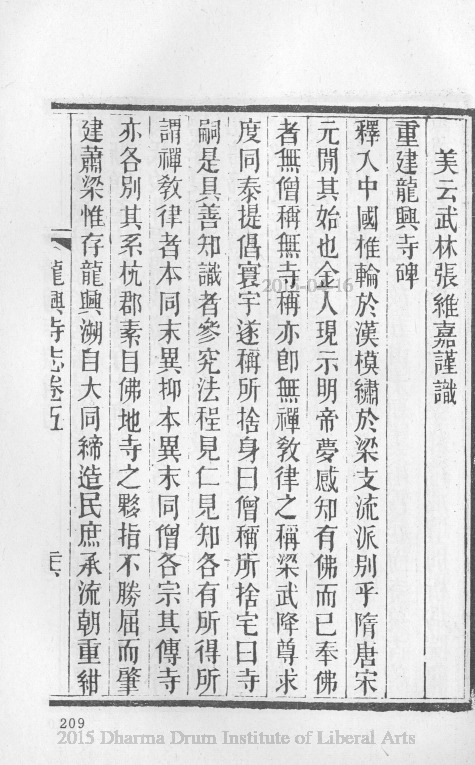 美云武林張維嘉謹識
重建龍興寺碑
釋入中國椎輪於漢模繡於梁支流派别乎隋唐宋
元閒其始也金人現示明帝夢感知有佛而已奉佛
者無僧稱無寺稱亦卽無禪敎律之稱梁武降尊求
度同泰提倡寰宇遂稱所捨身曰僧稱所捨宅曰寺
嗣是具善知識者參究法程見仁見知各有所得所
謂禪敎律者本同末異抑本異末同僧各宗其傳寺
亦各別其系杭郡素目佛地寺之夥指不勝屈而肇
建蕭梁惟存龍興溯自大同締造民庶承流朝重紺
龍興寺志卷五
209
2015 Dharma Drum Institute of Liberal Arts